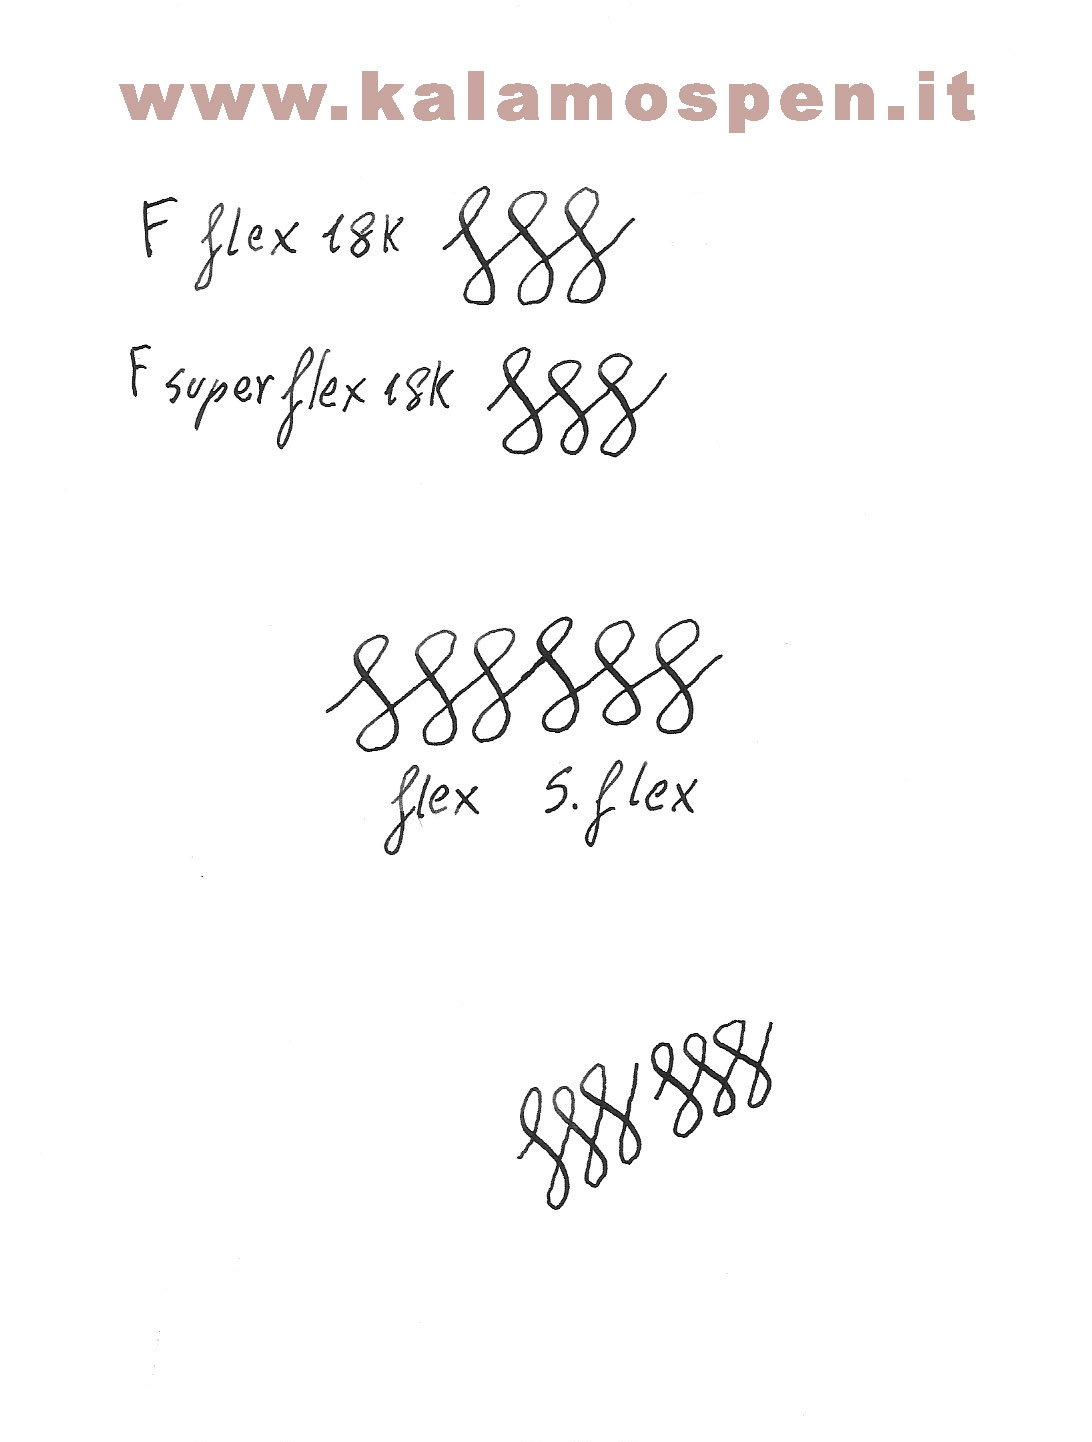 www.kalamospen.it
F flex 18K
F superflex 18K
flex S.flex